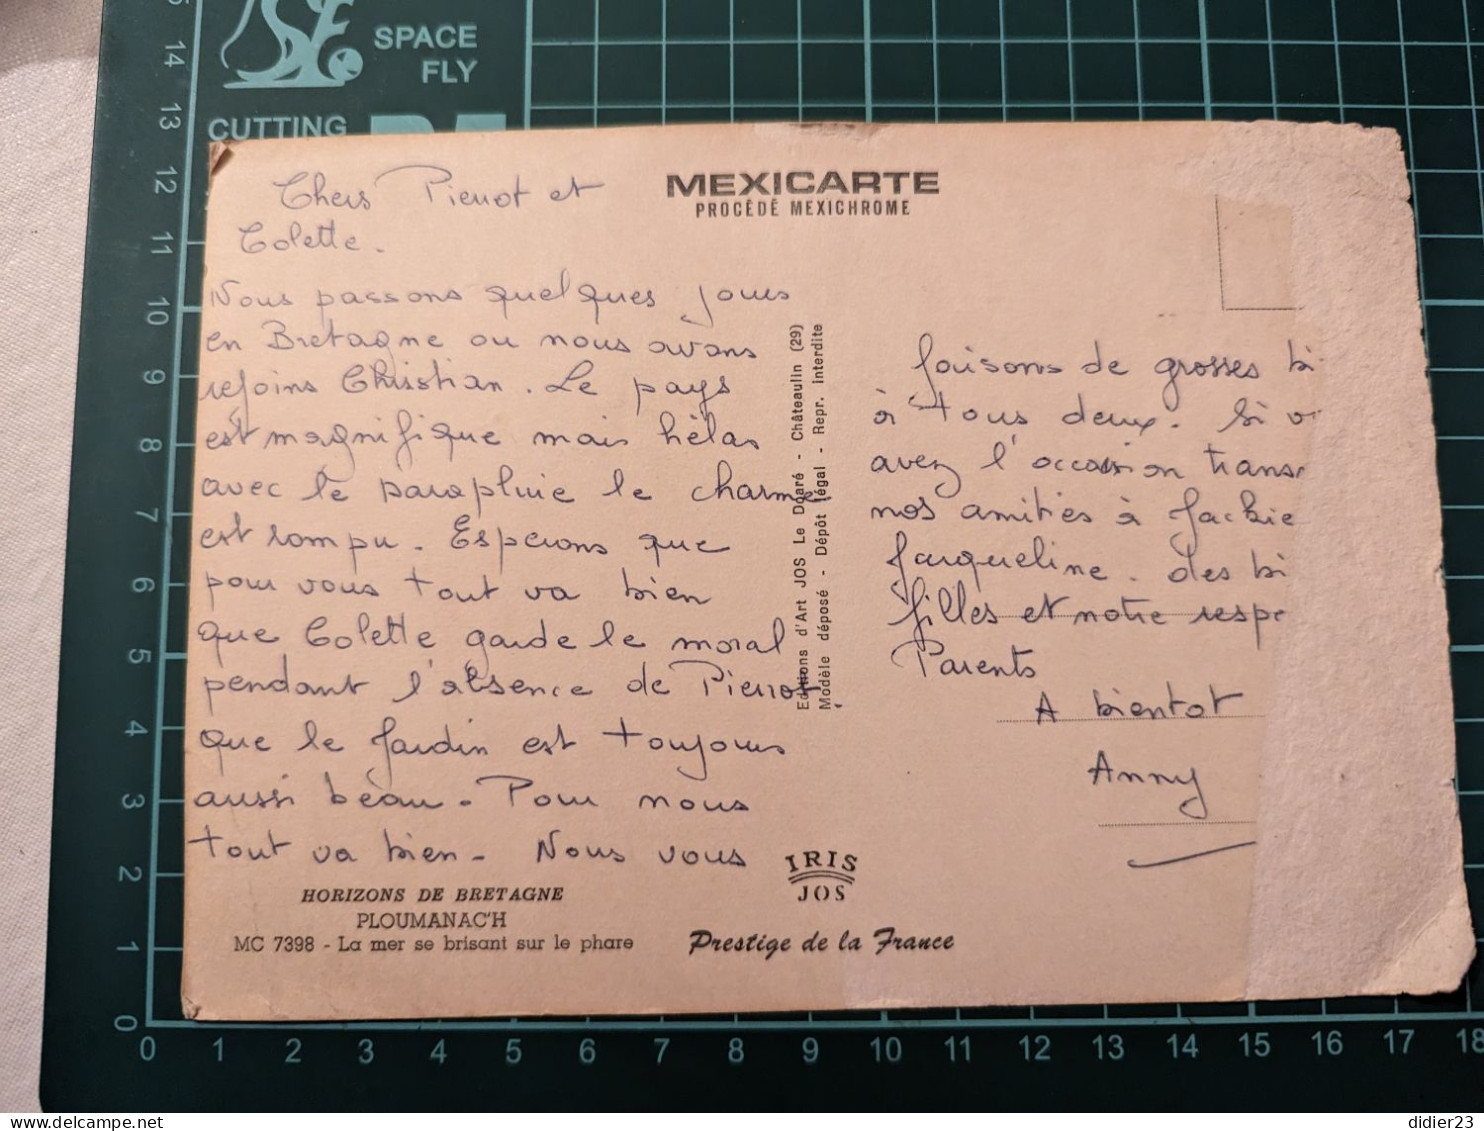 SPACE
FLY
CUTTING
15
14
13
12
11
10
9
8
7
6
5
4
3
2
1
0
Chers Pierrot et
Colette.
Nous passons quelques jours
en Bretagne ou nous avons
rejoins Christian. Le pays
est magnifique mais hélas
avec le parapluie le charme
est rompu. Esperons que
pour vous tout va bien
que Colette garde le moral
pendant l'absence de Pierrot
que le jardin est toujours
aussi beau. Pour nous
tout va bien. Nous vous
HORIZONS DE BRETAGNE
PLOUMANAC'H
MC 7398 - La mer se brisant sur le phare
MEXICARTE
PROCÉDÉ MEXICHROME
Editions d'Art JOS Le Doaré - Châteaulin (29)
Modèle déposé - Dépôt légal - Repr. interdite
IRIS
JOS
Prestige de la France
faisons de grosses bi
à tous deux. Si v
avez l'occasion trans
nos amitiés à Jackie
Jacqueline. des bi
filles et notre respe
Parents
A bientot
Anny
0 1 2 3 4 5 6 7 8 9 10 11 12 13 14 15 16 17 18
didier23